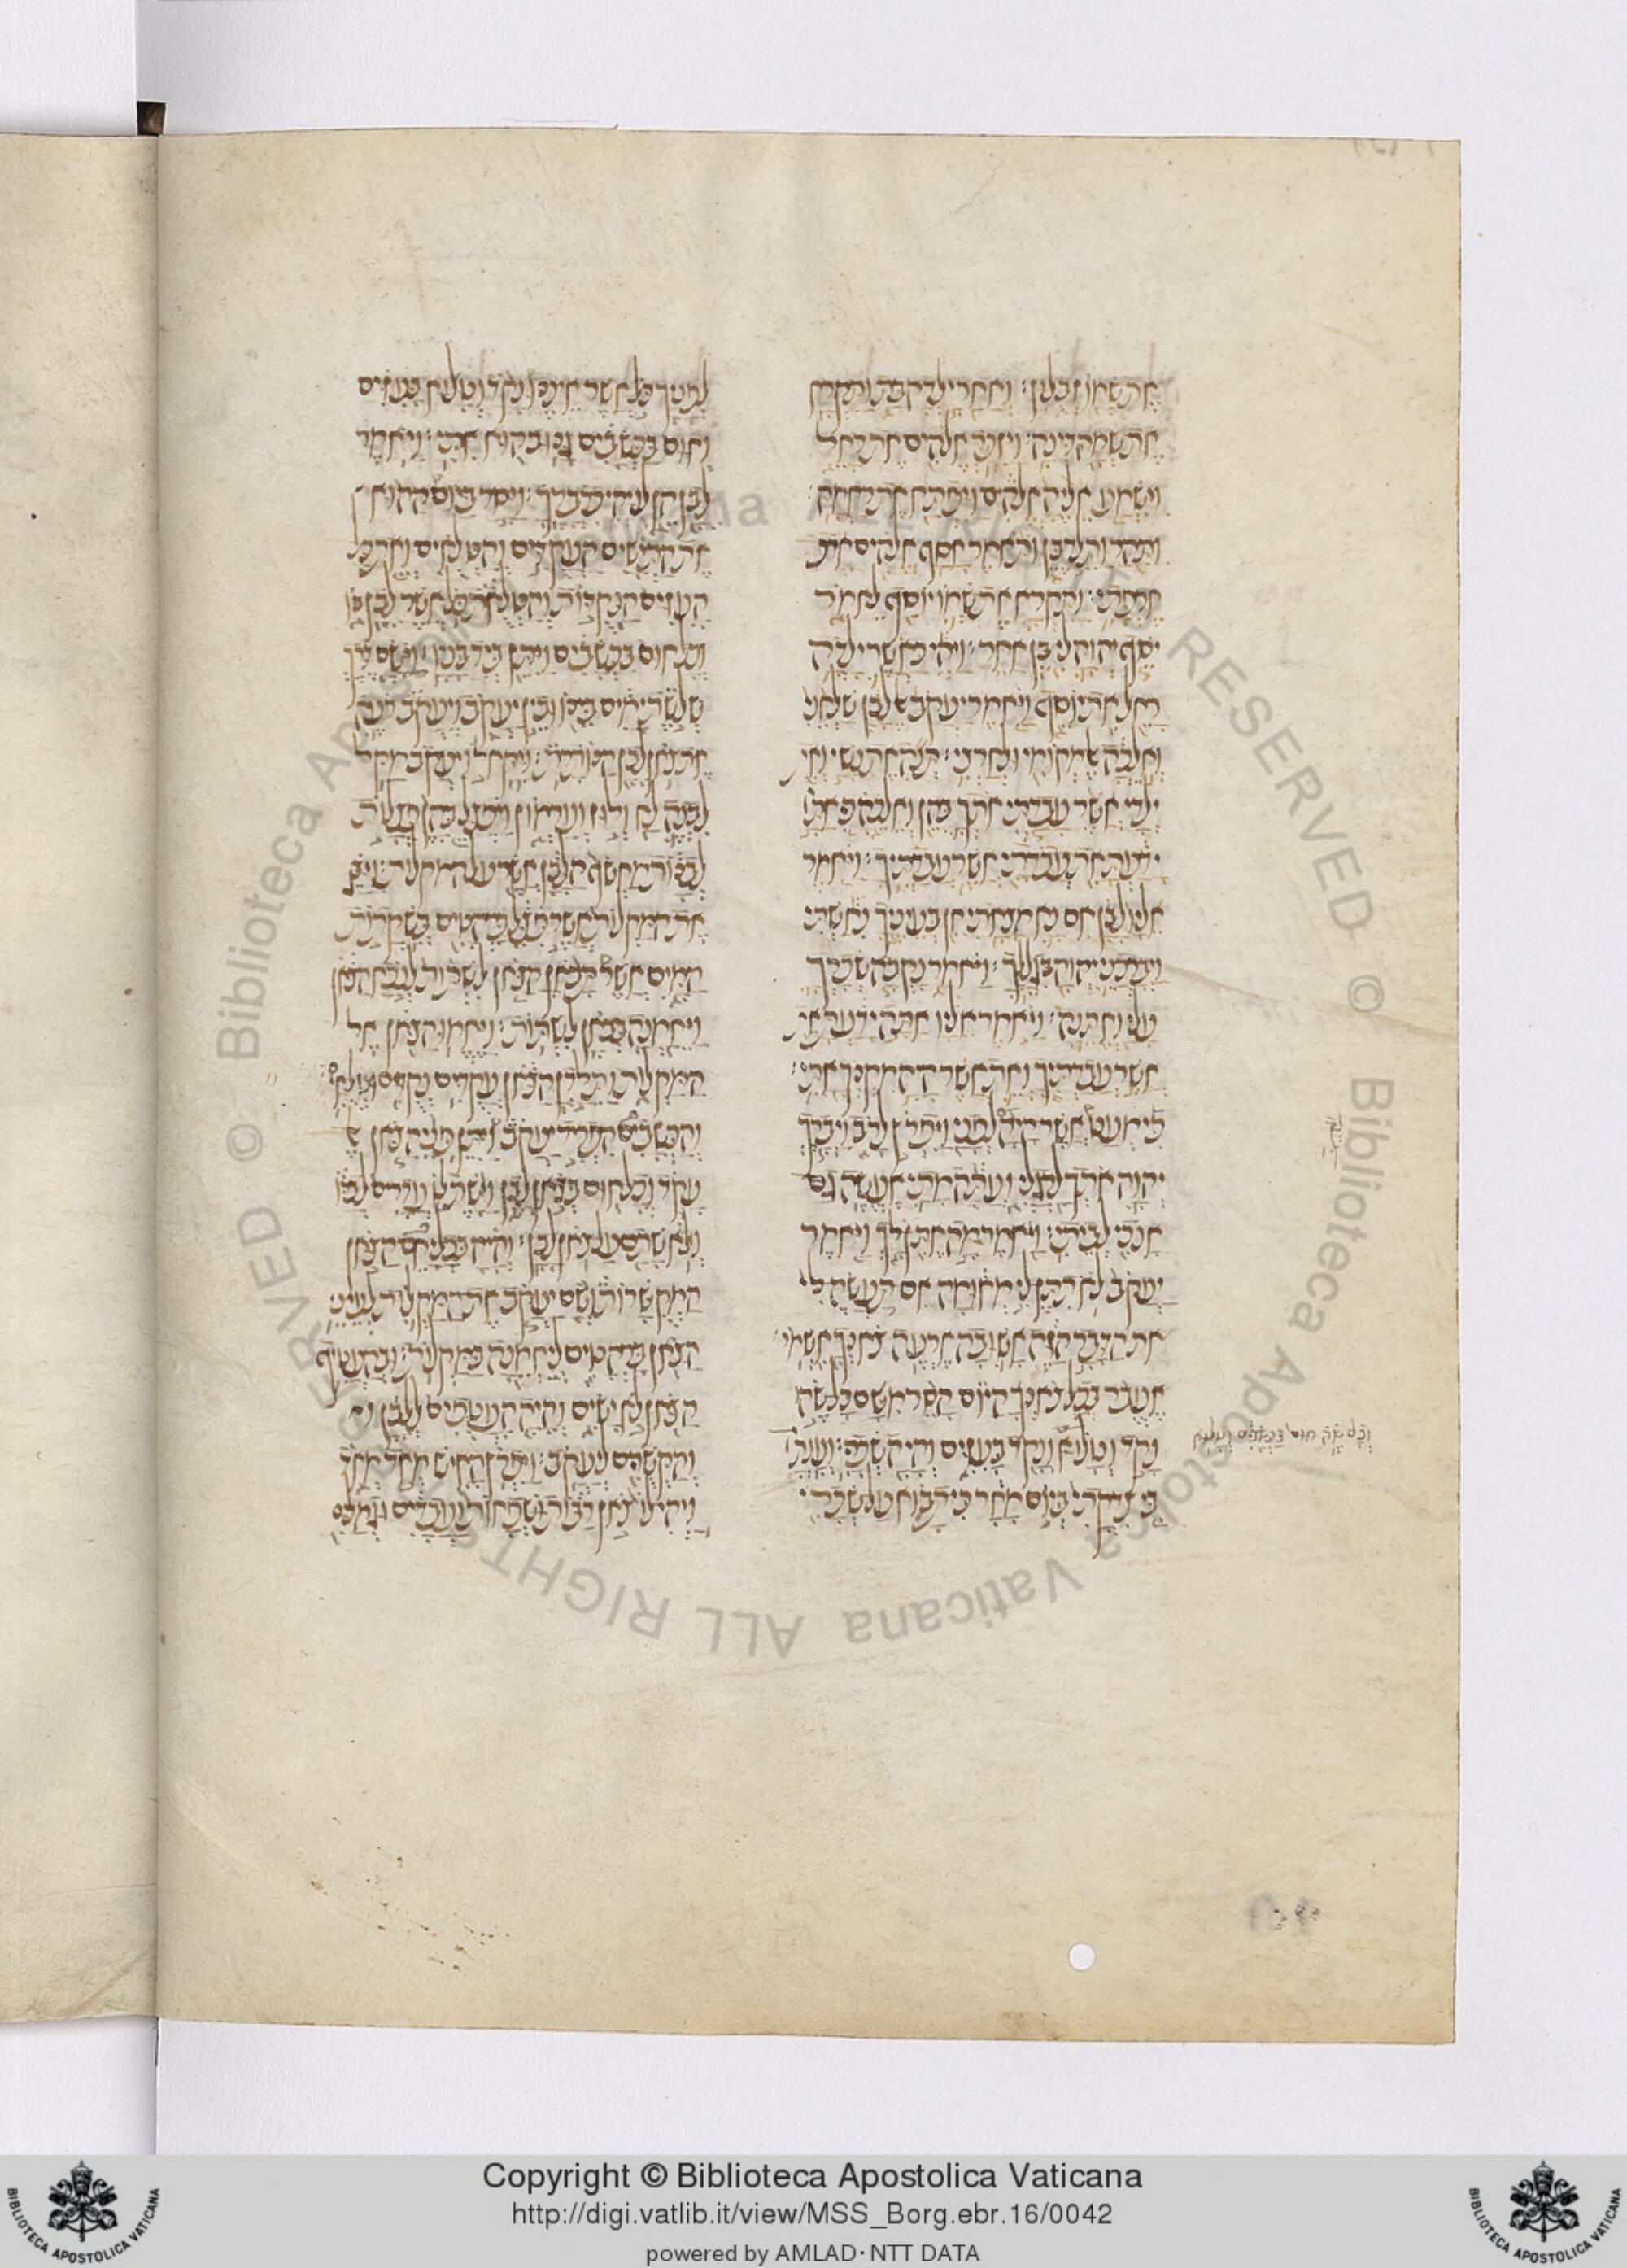 את שמו זבלון: ואחר ילדה בת ותקרא
את שמה דינה: ויזכר אלהים את רחל
וישמע אליה אלהים ויפתח את רחמה:
ותהר ותלד בן ותאמר אסף אלהים את
חרפתי: ותקרא את שמו יוסף לאמר
יסף יהוה לי בן אחר: ויהי כאשר ילדה
רחל את יוסף ויאמר יעקב אל לבן שלחני
ואלכה אל מקומי ולארצי: תנה את נשי ואת
ילדי אשר עבדתי אתך בהן ואלכה כי אתה
ידעת את עבדתי אשר עבדתיך: ויאמר
אליו לבן אם נא מצאתי חן בעיניך נחשתי
ויברכני יהוה בגללך: ויאמר נקבה שכרך
עלי ואתנה: ויאמר אליו אתה ידעת את
אשר עבדתיך ואת אשר היה מקנך אתי:
כי מעט אשר היה לך לפני ויפרץ לרב ויברך
יהוה אתך לרגלי ועתה מתי אעשה גם
אנכי לביתי: ויאמר מה אתן לך ויאמר
יעקב לא תתן לי מאומה אם תעשה לי
את הדבר הזה אשובה ארעה צאנך אשמר:
אעבר בכל צאנך היום הסר משם כל שה
נקד וטלוא ונקד בעזים והיה שכרי: וענתה
וכל שה חום בכשבים וטלוא
בי צדקתי ביום מחר כי תבוא על שכרי
לפניך כל אשר איננו נקד וטלוא בעזים
וחום בכשבים גנוב הוא אתי: ויאמר
לבן הן לו יהי כדברך: ויסר ביום ההוא
את התישים העקדים והטלאים ואת כל
העזים הנקדות והטלאת כל אשר לבן בו
וכל חום בכשבים ויתן ביד בניו: וישם דרך
שלשת ימים בינו ובין יעקב ויעקב רעה
את צאן לבן הנותרת: ויקח לו יעקב מקל
לבנה לח ולוז וערמון ויפצל בהן פצלות
לבנות מחשף הלבן אשר על המקלות: ויצג
את המקלות אשר פצל ברהטים בשקתות
המים אשר תבאן הצאן לשתות לנכח הצאן
ויחמנה בבאן לשתות: ויחמו הצאן אל
המקלות ותלדן הצאן עקדים נקדים וטלאים:
והכשבים הפריד יעקב ויתן פני הצאן אל
עקד וכל חום בצאן לבן וישת לו עדרים לבדו
ולא שתם על צאן לבן: והיה בכל יחם הצאן
המקשרות ושם יעקב את המקלות לעיני
הצאן ברהטים ליחמנה במקלות: ובהעטיף
הצאן לא ישים והיה העטפים ללבן
והקשרים ליעקב: ויפרץ האיש מאד מאד
ויהי לו צאן רבות ושפחות ועבדים וגמלים
Biblioteca Apostolica Vaticana ALL RIGHTS RESERVED ©
Copyright © Biblioteca Apostolica Vaticana
http://digi.vatlib.it/view/MSS_Borg.ebr.16/0042
powered by AMLAD·NTT DATA
BIBLIOTECA APOSTOLICA VATICANA
BIBLIOTECA APOSTOLICA VATICANA